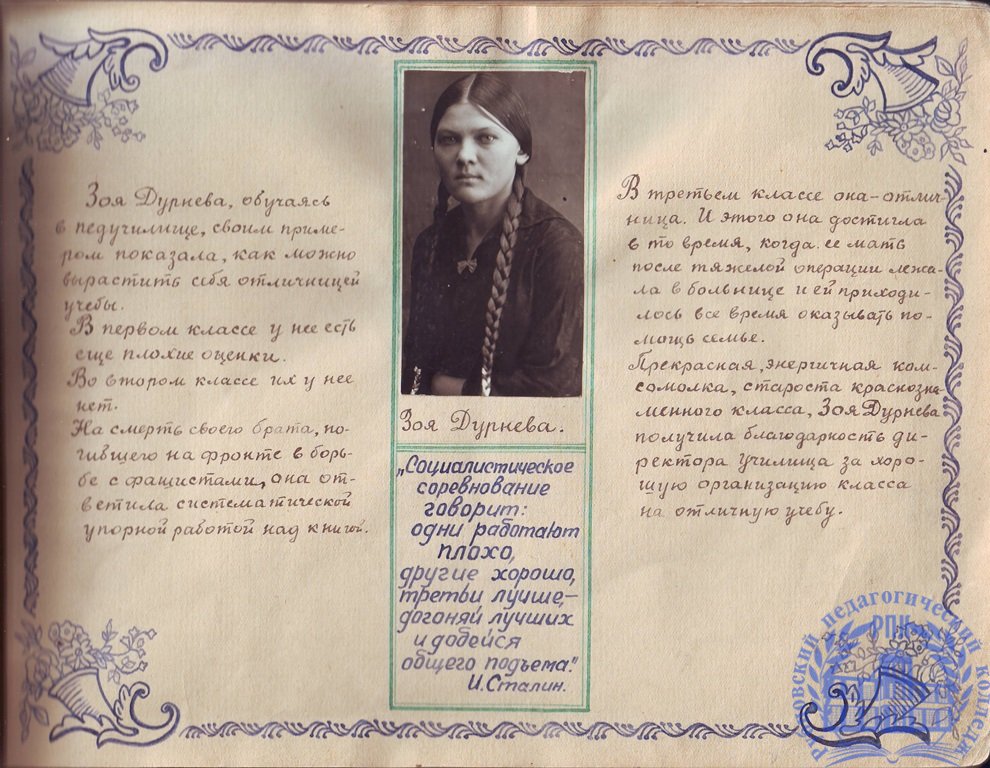 Зоя Дурнева, обучаясь
в педучилище, своим приме-
ром показала, как можно
вырастить себя отличницей
учебы.
В первом классе у нее есть
еще плохие оценки.
Во втором классе их у нее
нет.
На смерть своего брата, по-
гившего на фронте в борь-
бе с фашистами, она от-
ветила систематической
упорной работой над книгой.
Зоя Дурнева.
„Социалистическое
соревнование
говорит:
одни работают
плохо,
другие хорошо,
третьи лучше,—
догоняй лучших
и добейся
общего подъема."
И. Сталин.
В третьем классе она-отлич-
ница. И этого она достигла
в то время, когда ее мать
после тяжелой операции лежа-
ла в больнице и ей приходи-
лось все время оказывать по-
мощь семье.
Прекрасная, энергичная ком-
сомолка, староста краснозна-
менного класса, Зоя Дурнева
получила благодарность ди-
ректора училища за хоро-
шую организацию класса
на отличную учебу.
педагогический колледж
РПК